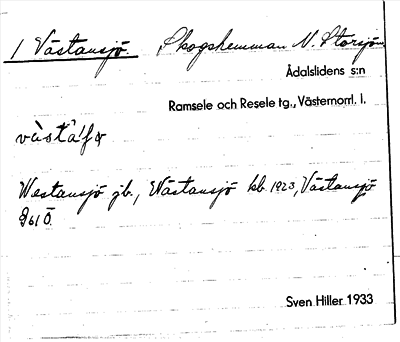 1 Västansjö. Skogshemman N. Storsjön
Ådalslidens s:n
Ramsele och Resele tg., Västernorrl. l.
Westansjö jb., Västansjö kb. 1923, Västansjö
961 Ö.
Sven Hiller 1933